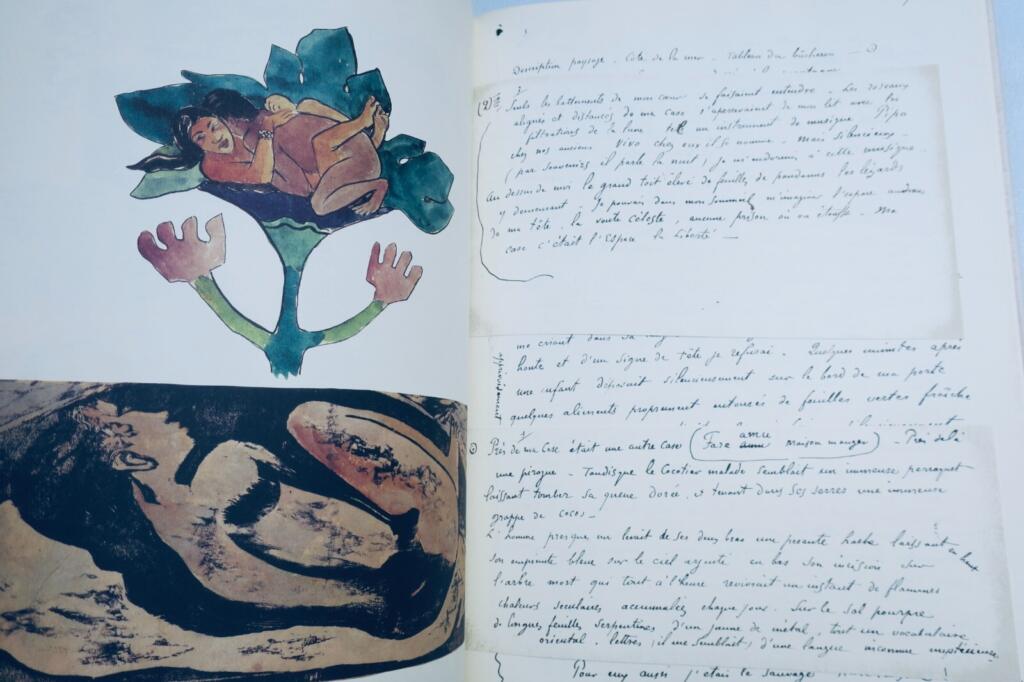 Description paysage - Côté de la mer - Tableau du bûcheron -
(2) Seuls les battements de mon cœur se faisaient entendre. Les roseaux
alignés et distancés de ma case s'apercevaient de mon lit avec les
filtrations de la lune tel un instrument de musique. Pipo
chez nos anciens Vivo chez eux il se nomme - mais silencieux -
(par souvenirs il parle la nuit) Je m'endormis à cette musique.
Au dessus de moi le grand toit élevé de feuilles de pandanus les lézards
y demeurant - Je pouvais dans mon sommeil m'imaginer l'espace au dessus
de ma tête, la voute céleste, aucune prison où on étouffe - Ma
case c'était l'Espace la Liberté -
me criant dans sa
honte et d'un signe de tête je refusai. Quelques minutes après
une enfant déposait silencieusement sur le bord de ma porte
quelques aliments proprement entourés de feuilles vertes fraîche
Près de ma Case était une autre case (Fare amu maison manger) - Près de là
une pirogue - Tandisque le Cocotier malade semblait un immense perroquet
laissant tomber sa queue dorée, et tenant dans ses serres une immense
grappe de cocos -
L'homme presque nu levait de ses deux bras une pesante hache laissant en haut
son empreinte bleue sur le ciel argenté en bas son incision sur
l'arbre mort qui tout à l'heure revivrait un instant de flammes
chaleurs séculaires accumulées chaque jour. Sur le sol pourpre
de longues feuilles serpentines d'un jaune de métal, tout un vocabulaire
oriental. lettres (il me semblait) d'une langue inconnue mystérieuse
Pour eux aussi j'étais le sauvage